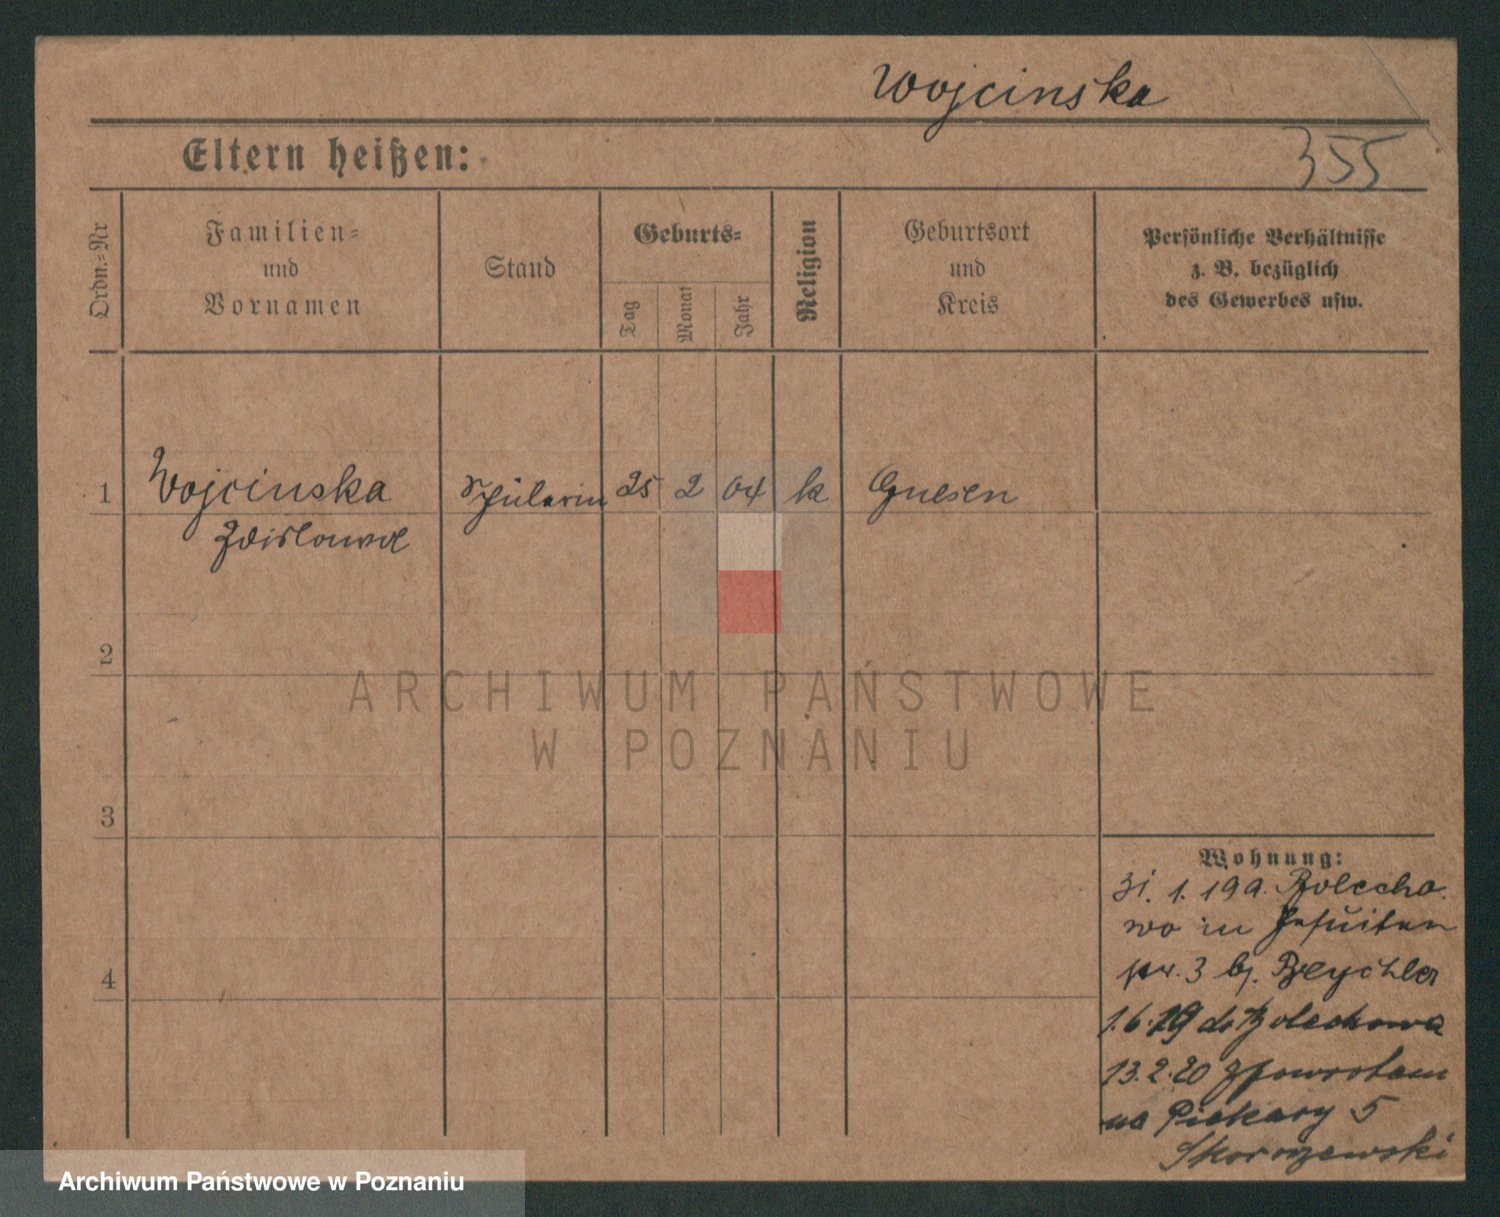 Wojcinska
355
Eltern heißen:
Ordn.=Nr
Familien=
und
Vornamen
Stand
Geburts=
Tag
Monat
Jahr
Religion
Geburtsort
und
Kreis
Persönliche Verhältnisse
z. B. bezüglich
des Gewerbes usw.
1 Wojcinska Schülerin 25 2 04 k Gnesen
Zdislawa
2
ARCHIWUM PAŃSTWOWE
W POZNANIU
3
4
Wohnung:
31. 1. 19 a. Bolecho
wo in Jesuiten
str. 3 bj. Beychler
1.6.19 do Bolechowa
13.2.20 z powrotem
na Piekary 5
Skorzewski
Archiwum Państwowe w Poznaniu